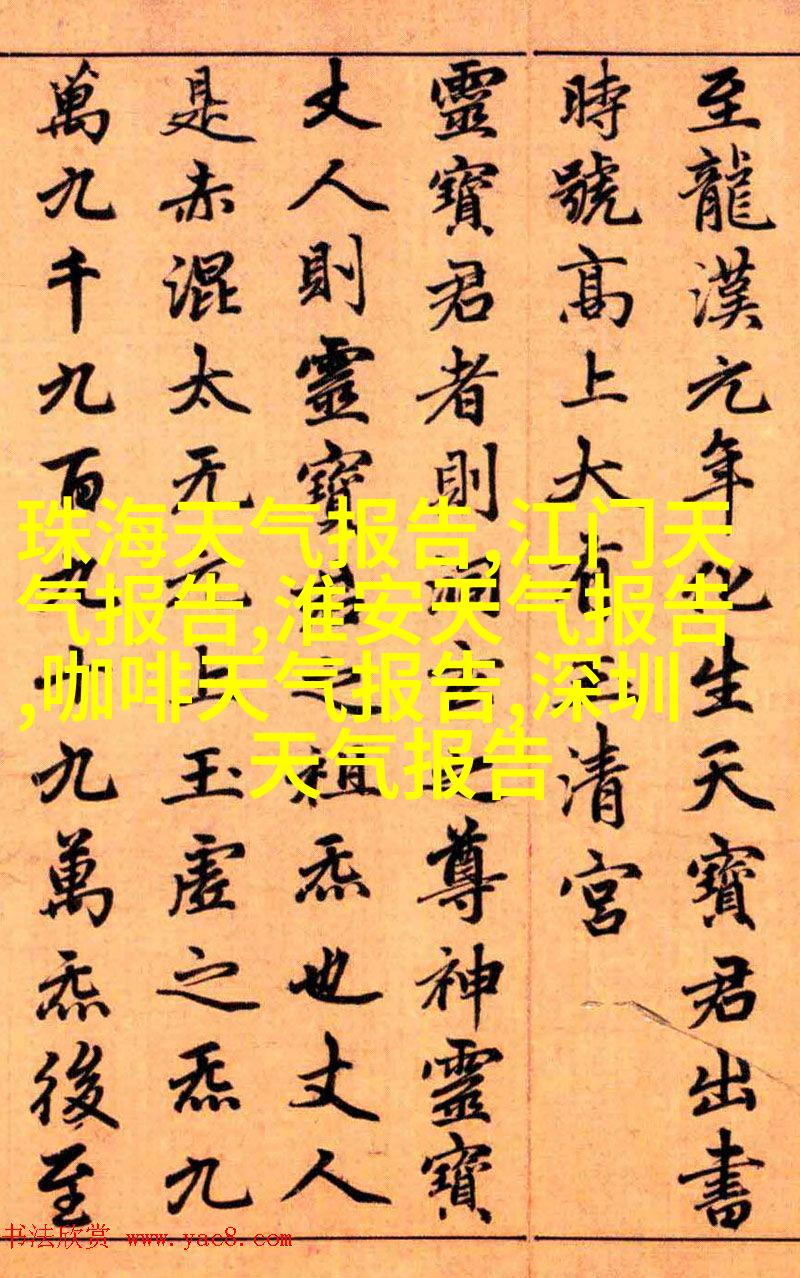 至龍漢元年化生天寶君出書
時號髙上大有清宮
靈寶君者則洞玄之尊神靈寶
丈人則靈寶君之祖炁也丈人
是赤混太无元上玉虛之炁九
萬九千九百九十九萬炁後至
珠海天气报告,江门天
气报告,淮安天气报告
,咖啡天气报告,深圳
天气报告
书法欣赏 www.yac8.com